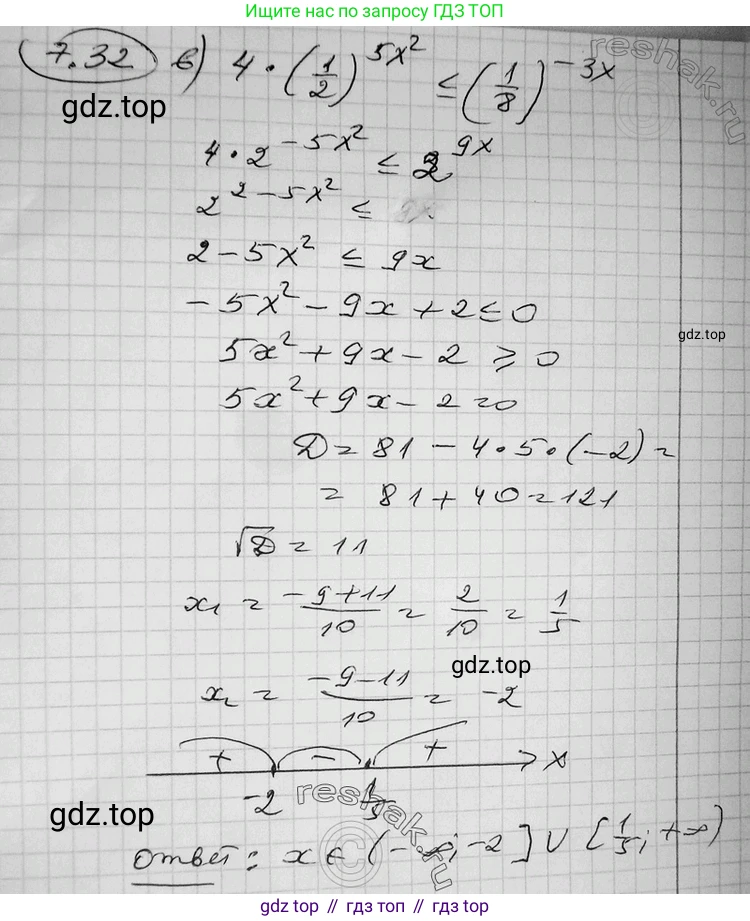 Ищите нас по запросу ГДЗ ТОП
7.32 в) 4 · (1/2)^5x² ≤ (1/8)^-3x
gdz.top
reshak.ru
4 · 2^-5x² ≤ 2^9x
2^2-5x² ≤
2 - 5x² ≤ 9x
-5x² - 9x + 2 ≤ 0
gdz.top
5x² + 9x - 2 ≥ 0
5x² + 9x - 2 = 0
D = 81 - 4 · 5 · (-2) =
= 81 + 40 = 121
√D = 11
x₁ = -9+11/10 = 2/10 = 1/5
gdz.top
x₂ = -9-11/10 = -2
+ - + x
-2 1/5
gdz.top
reshak.ru
Ответ: x ∈ (-∞; -2] ∪ [1/5; +∞)
gdz.top // gdz.top // gdz.top